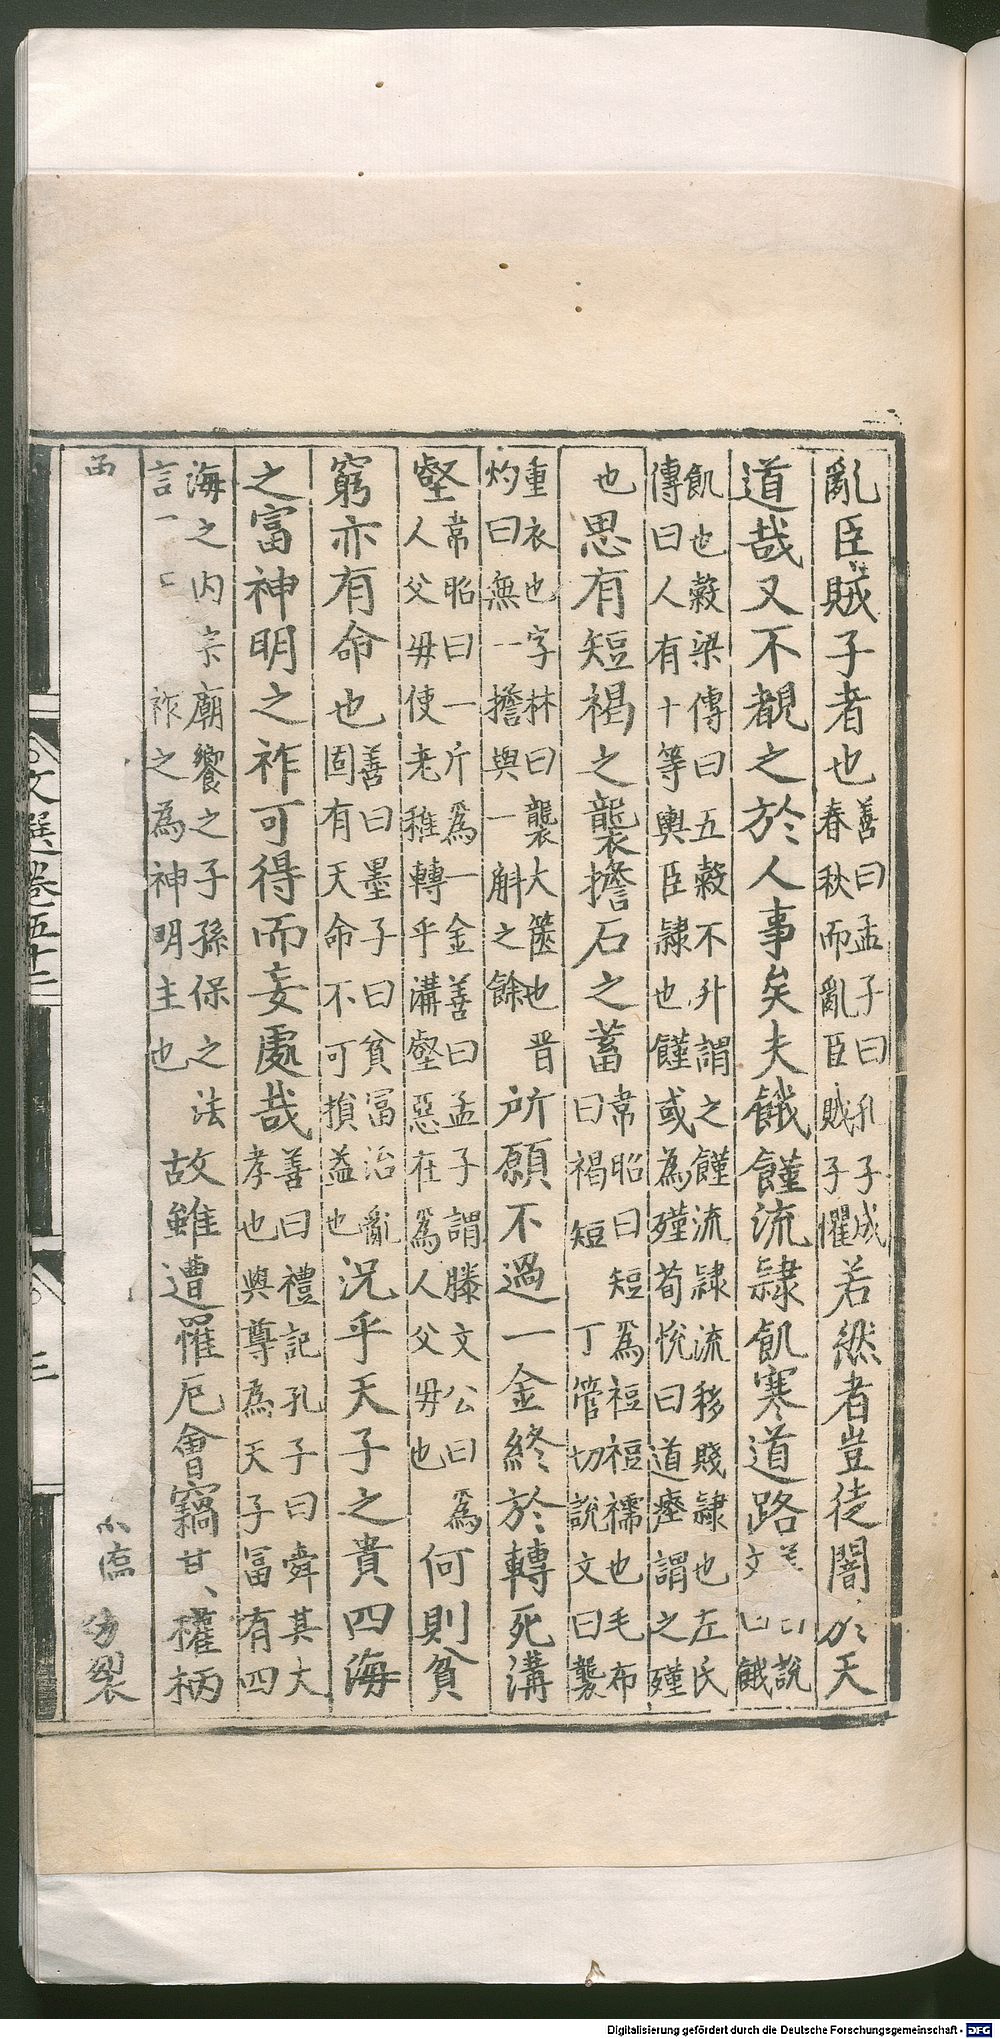 亂臣賊子者也善曰孟子曰孔子成春秋而亂臣賊子懼若然者豈徒闇於天
道哉又不覩之於人事矣夫餓饉流隷飢寒道路說文曰餓
飢也穀梁傳曰五穀不升謂之饉流隷流移賤隷也左氏傳曰人有十等輿臣隷也饉或為殣荀悅曰道瘞謂之殣
也思有短褐之襲擔石之蓄韋昭曰短爲裋裋襦也毛布曰褐短丁管切說文曰襲
重衣也字林曰襲大篋也晋灼曰無一擔與一斛之餘所願不過一金終於轉死溝
壑韋昭曰一斤爲一金善曰孟子謂滕文公曰爲人父毋使老稚轉乎溝壑惡在爲人父毋也何則貧
窮亦有命也善曰墨子曰貧冨治亂固有天命不可損益也況乎天子之貴四海
之富神明之祚可得而妄處哉善曰禮記孔子曰舜其大孝也與尊為天子冨有四
海之内宗廟饗之子孫保之法言一祚之為神明主也故雖遭罹厄會竊其權柄
西 裂
文選卷五十二
三
Digitalisierung gefördert durch die Deutsche Forschungsgemeinschaft - DFG